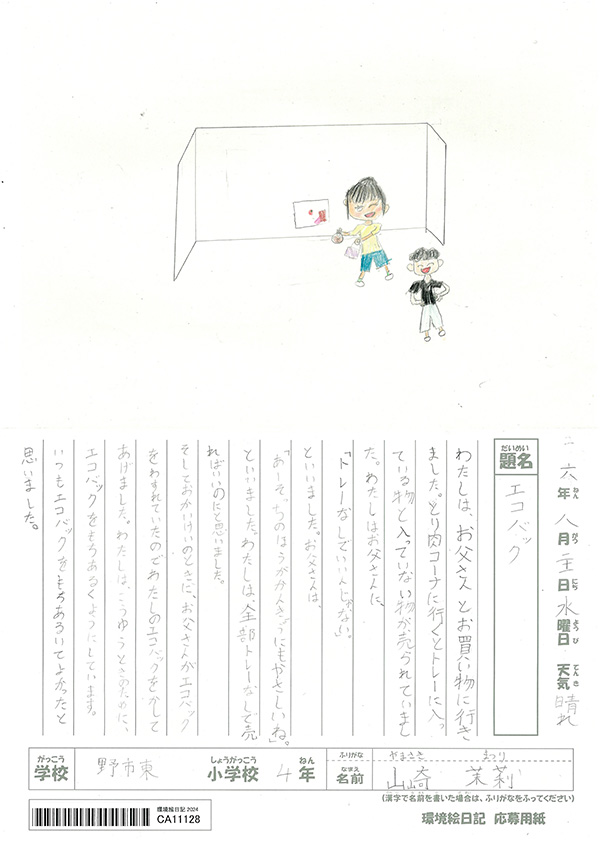 六年八月日水曜日天気晴れ
ねんがつにちようびてんき
だいめい
題名 エコバック
わたしは、お父さんとお買い物に行き
ました。とり肉コーナに行くとトレーに入っ
ている物と入っていない物が売られていまし
た。わたしはお父さんに、
「トレーなしでいいんじゃない」
といいました。お父さんは、
「あーそっちのほうがかんきょうにもやさしいね」。
といいました。わたしは、全部トレーなしで売
ればいいのにと思いました。
そしておかいけいのときに、お父さんがエコバック
をわすれていたのでわたしのエコバックをかして
あげました。わたしは、こうゆうときのために、
エコバックをもちあるくようにしています。
いつもエコバックをもちあるいてよかったと
思いました。
がっこう しょうがっこう ねん ふりがな やまさき まつり
学校 野市東 小学校 4年 なまえ 名前 山崎 茉莉
(漢字で名前を書いた場合は、ふりがなをふってください)
環境絵日記 2024
CA11128
環境絵日記 応募用紙